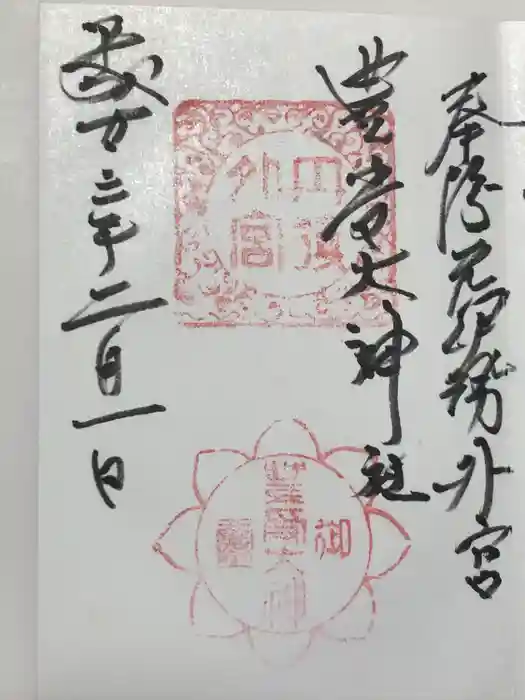 奉拝元伊勢外宮
豊受大神社
平成廿三年二月一日
外宮
御
大神